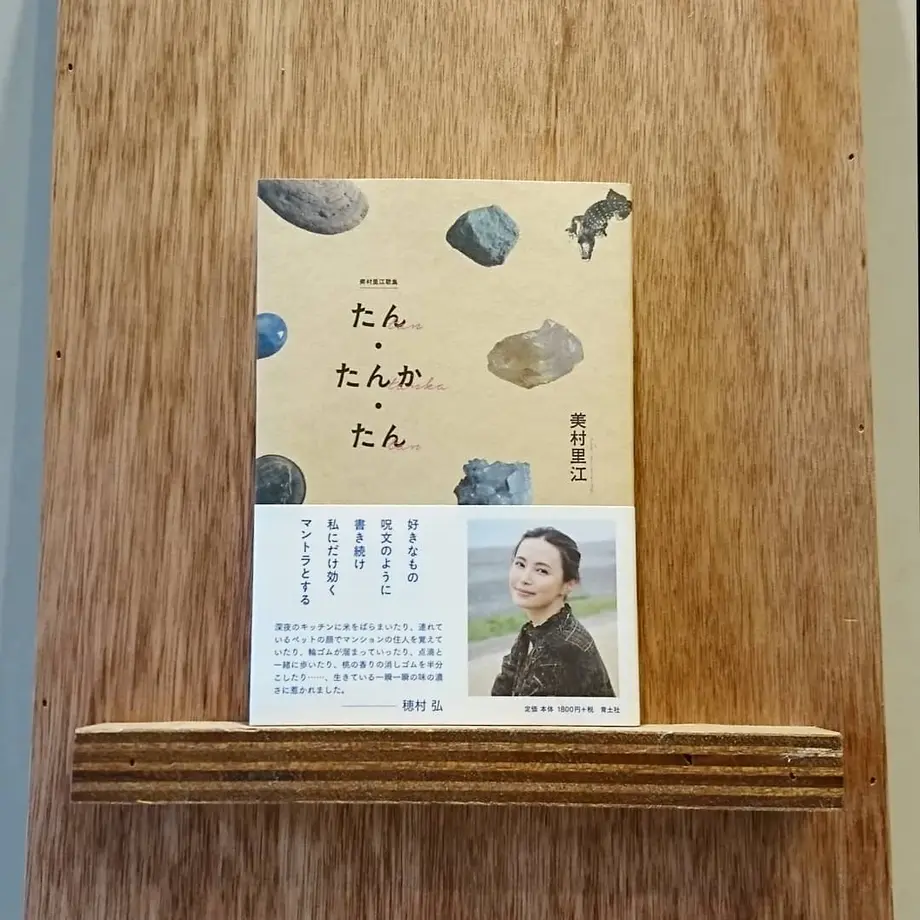 美村里江歌集
たん
tan
・
たんか
tanka
・
たん
tan
美村里江
好きなもの
呪文のように
書き続け
私にだけ効く
マントラとする
深夜のキッチンに米をばらまいたり、連れて
いるペットの顔でマンションの住人を覚えて
いたり、輪ゴムが溜まっていったり、点滴と
一緒に歩いたり、桃の香りの消しゴムを半分
こしたり……、生きている一瞬一瞬の味の濃
さに惹かれました。
穂村 弘
定価 本体 1800円+税 青土社